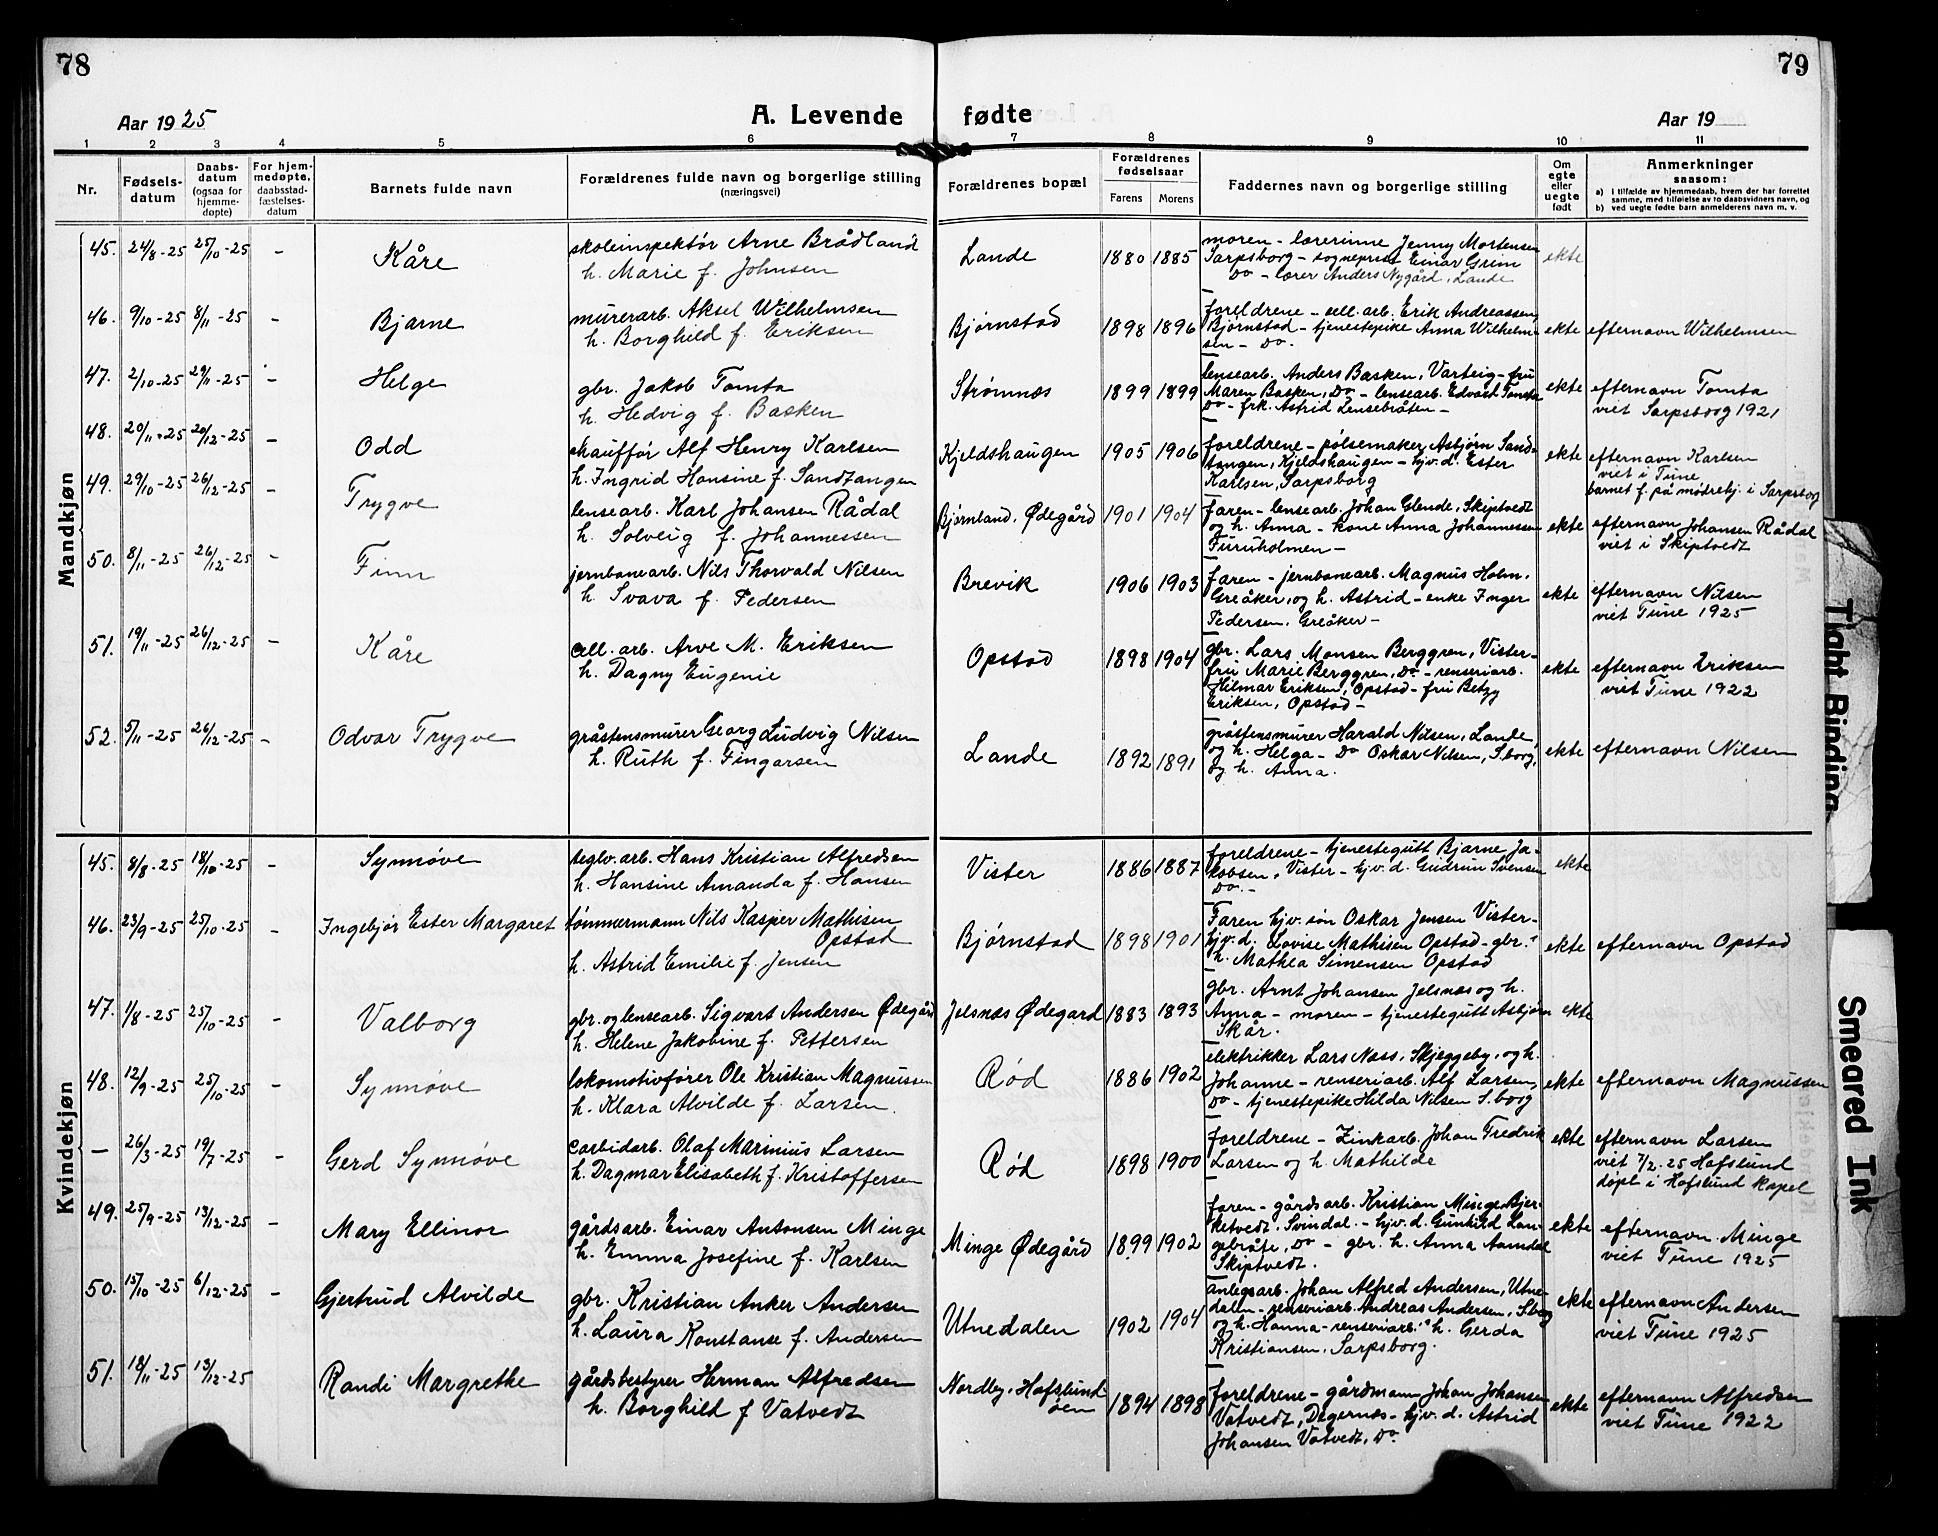 78
79
Aar 1925
A. Levende fødte
Aar 19
1 2 3 4 5 6 7 8 9 10 11
Nr.
Fødsels-
datum
Daabs-
datum
(ogsaa for
hjemme-
døpte)
For hjem-
medøpte,
daabsstad-
fæstelses-
datum
Barnets fulde navn
Forældrenes fulde navn og borgerlige stilling
(næringsvei)
Forældrenes bopæl
Forældrenes
fødselsaar
Farens Morens
Faddernes navn og borgerlige stilling
Om
egte
eller
uegte
født
Anmerkninger
saasom:
a) I tilfælde av hjemmedaab, hvem der har forrettet
samme, med tilføielse av to daabsvidners navn, og
b) ved uegte fødte barn anmelderens navn m. v.
Mandkjøn
45. 24/8-25 25/10-25 - Kåre
skoleinspektør Arne Brådland
h. Marie f. Johnsen
Lande 1880 1885
moren - lærerinne Jenny Mortensen
Sarpsborg - sogneprest Einar Grim
Do - lærer Anders Nygård, Lande
ekte
46. 9/10-25 8/11-25 - Bjarne
murerarb. Aksel Wilhelmsen
h. Borghild f. Eriksen
Bjørnstad 1898 1896
foreldrene - cell. arb. Erik Andreassen
Bjørnstad - tjenestepike Anna Wilhelm-
sen - Do.
ekte efternavn Wilhelmsen
47. 2/10-25 29/11-25 - Helge
gbr. Jakob Tomta
h. Hedvig f. Basken
Strømnæs 1899 1899
lensearb. Anders Basken, Varteig - fru
Maren Basken, Do - lensearb. Edvard Tomta
Do - frk. Astrid Lensebråten -
ekte efternavn Tomta
viet Sarpsborg 1921
48. 20/11-25 20/12-25 - Odd
chauffør Alf Henry Karlsen
h. Ingrid Hansine f. Sandtangen
Kjeldshaugen 1905 1906
foreldrene - pølsemaker Asbjørn Sand-
tangen, Kjeldshaugen - hjv. d. Ester
Karlsen, Sarpsborg
ekte efternavn Karlsen
viet i Tune
barnet f. på mødrehj. i Sarpsborg
49. 29/10-25 26/12-25 - Trygve
lensearb. Karl Johansen Rådal
h. Solveig f. Johannessen
Bjørnland, Ødegård 1901 1904
faren - lensearb. Johan Glende, Skiptvedt
og h. Anna - kone Anna Johannessen
Furuholmen -
ekte efternavn Johansen Rådal
viet i Skiptvedt
50. 8/11-25 26/12-25 - Finn
jernbanearb. Nils Thorvald Nilsen
h. Svava f. Pedersen
Brevik 1906 1903
faren - jernbanearb. Magnus Holm,
Greåker, og h. Astrid - enke Inger
Pedersen, Greåker -
ekte efternavn Nilsen
viet Tune 1925
51. 19/11-25 26/12-25 - Kåre
cell. arb. Arve M. Eriksen
h. Dagny Eugenie
Opstad 1898 1904
gbr. Lars Monsen Berggren, Vister -
fru Marie Berggren, Do - renseriarb.
Hilmar Eriksen, Opstad - fru Betzy
Eriksen, Opstad -
ekte efternavn Eriksen
viet Tune 1922
52. 5/11-25 26/12-25 - Odvar Trygve
gråstensmurer Georg Ludvig Nilsen
h. Ruth f. Fingarsen
Lande 1892 1891
gråstensmurer Harald Nilsen, Lande
og h. Helga - Do Oskar Nilsen, S.borg,
og h. Anna.
ekte efternavn Nilsen
Kvindekjøn
45. 8/8-25 18/10-25 - Synnøve
teglv. arb. Hans Kristian Alfredsen
h. Hansine Amanda f. Hansen
Vister 1886 1887
foreldrene - tjenestegutt Bjarne Ja-
kobsen, Vister - hjv. d. Gudrun Svensen
Do. -
ekte
46. 23/9-25 25/10-25 - Ingebjør Ester Margaret
tømmermann Nils Kasper Mathisen
Opstad
h. Astrid Emilie f. Jensen
Bjørnstad 1898 1901
Faren hjv. søn Oskar Jensen Vister -
hjv. d. Lovise Mathisen Opstad - gbr.
h. Mathea Simensen Opstad
ekte efternavn Opstad
47. 1/8-25 25/10-25 - Valborg
gbr. og lensearb. Sigvart Andersen Ødegård
h. Helene Jakobine f. Pettersen
Jelsnæs Ødegard 1883 1893
gbr. Arnt Johansen Jelsnæs og h.
Anna - moren - tjenestegutt Asbjørn
Skår.
ekte
48. 12/9-25 25/10-25 - Synnøve
lokomotivfører Ole Kristian Magnussen
h. Klara Alvilde f. Larsen.
Rød 1886 1902
elektrikker Lars Næss, Skjeggeby, og h.
Johanne - renseriarb. Alf Larsen,
Do - tjenestepike Hilda Nilsen S.borg
ekte efternavn Magnussen
- 26/3-25 19/7-25 - Gerd Synnøve
Carbidarb. Olaf Marinius Larsen
h. Dagmar Elisabeth f. Kristoffersen
Rød 1898 1900
foreldrene - Zinkarb. Johan Fredrik
Larsen og h. Mathilde
ekte efternavn Larsen
viet 7/2-25 Hafslund
døpt i Hafslund kapel
49. 25/9-25 13/12-25 - Mary Ellinor
gårdsarb. Einar Antonsen Minge
h. Emma Josefine f. Karlsen
Minge Ødegård 1899 1902
faren - gårdsarb. Kristian Minge, Bjer-
ketvedt, Svindal. - hjv. d. Gunhild Lan-
gebråte, Do - gbr. h. Anna Aamdal
Skiptvedt.
ekte efternavn Minge
viet Tune 1925
50. 15/10-25 6/12-25 - Gjertrud Alvilde
gbr. Kristian Anker Andersen
h. Laura Konstanse f. Andersen
Utnedalen 1902 1904
anlegsarb. Johan Alfred Andersen, Utne-
dalen - renseriarb. Andreas Andersen, S.borg
og h. Hanna - renseriarb. h. Gerda
Kristiansen, Sarpsborg.
ekte efternavn Andersen
viet Tune 1925
51. 18/11-25 13/12-25 Randi Margrethe
gårdsbestyrer Herman Alfredsen
h. Borghild f Vatvedt
Nordby, Hafslund
øen
1894 1898
foreldrene - gårdmann Johan Johansen
Vatvedt, Degernæs - hjv. d. Astrid
Johansen Vatvedt, Do.
ekte efternavn Alfredsen
viet Tune 1922
Tight Binding
Smeared Ink